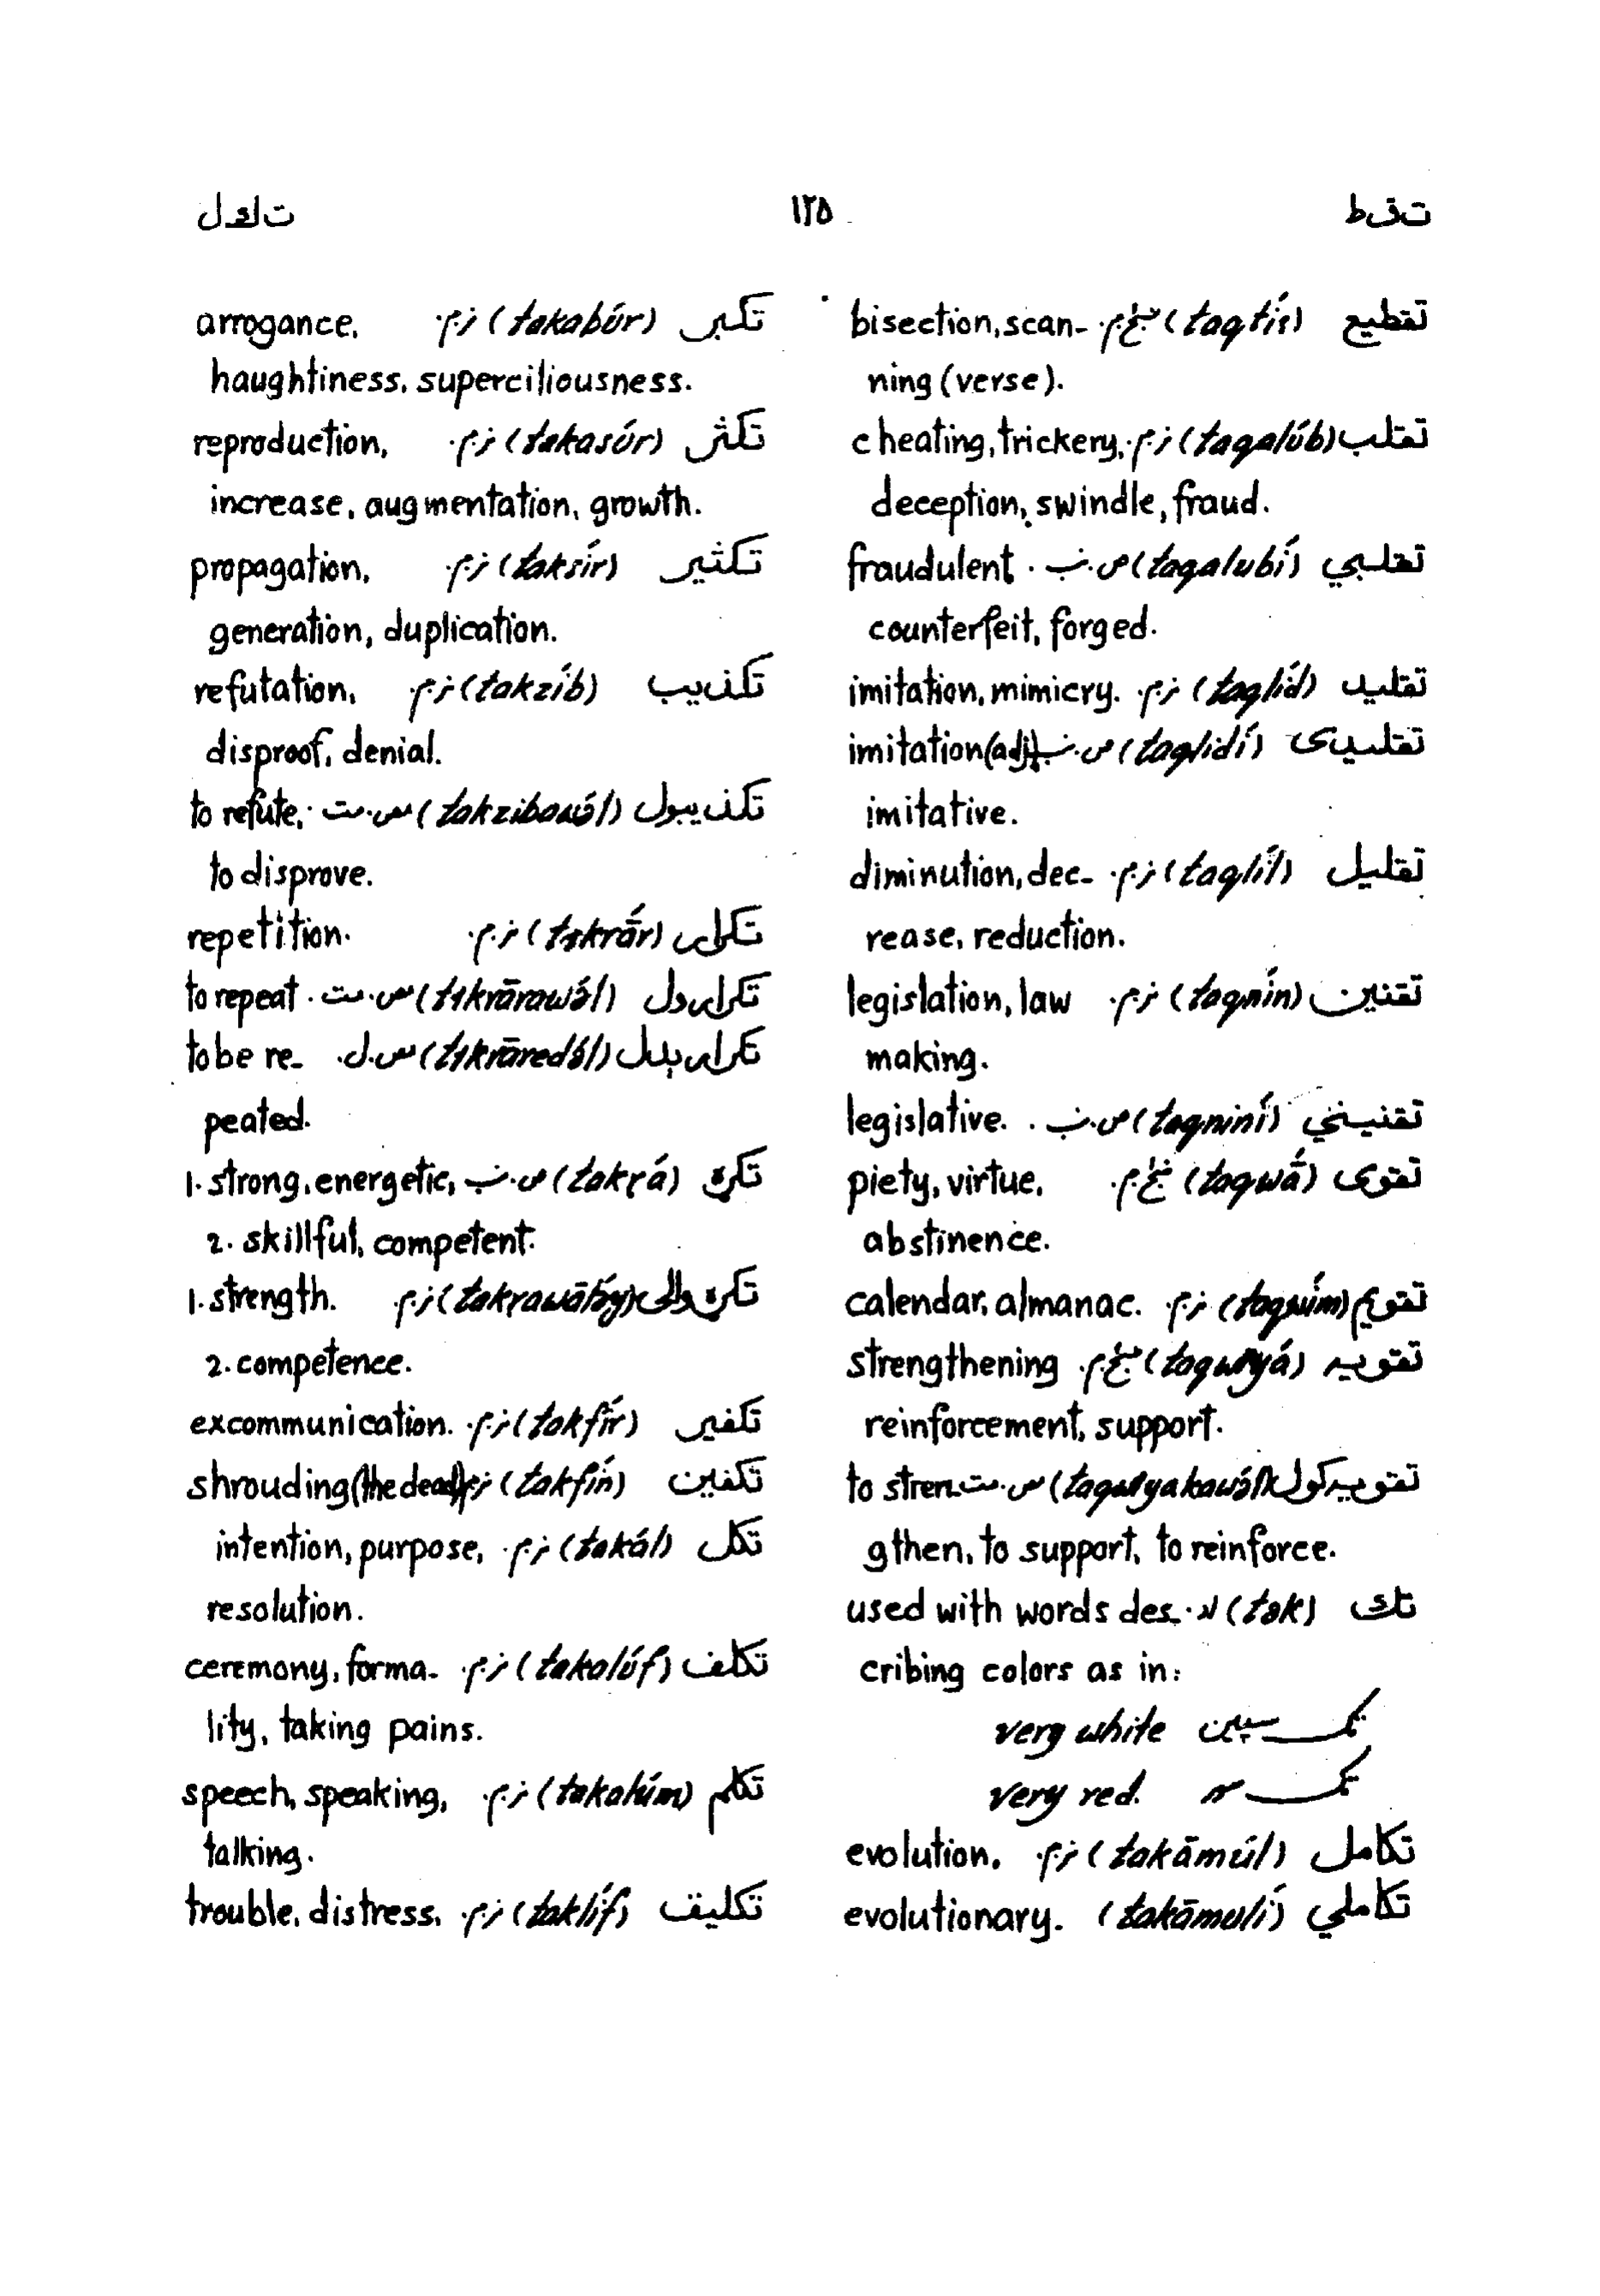 تقط ١٢٥ تکل
تقطیع (taqtíʼ) ښځ.م. bisection, scan-
ning (verse).
تقلب (taqalúb) نر.م. cheating, trickery,
deception, swindle, fraud.
تقلبي (taqalubí) ص.ب. fraudulent.
counterfeit, forged.
تقلید (taqlíd) نر.م. imitation, mimicry.
تقلیدی (taqlidí) ص.ب. imitation (adj),
imitative.
تقلیل (taqlíl) نر.م. diminution, dec-
rease, reduction.
تقنین (taqnín) نر.م. legislation, law
making.
تقنیني (taqniní) ص.ب. legislative.
تقوی (taqwā́) ښځ.م. piety, virtue,
abstinence.
تقویم (taqwím) نر.م. calendar, almanac.
تقویه (taqwiyá) ښځ.م. strengthening
reinforcement, support.
تقویه کول (taqwiyakawə́l) س.مت. to stren-
gthen, to support, to reinforce.
تک (tak) used with words des-
cribing colors as in:
تک سپین very white
تک سور very red.
تکامل (takāmúl) نر.م. evolution.
تکاملي (takāmulí) evolutionary.
تکبر (takabúr) نر.م. arrogance,
haughtiness, superciliousness.
تکثر (takasúr) نر.م. reproduction,
increase, augmentation, growth.
تکثیر (taksír) نر.م. propagation,
generation, duplication.
تکذیب (takzíb) نر.م. refutation,
disproof, denial.
تکذیبول (takzibawə́l) س.مت. to refute,
to disprove.
تکرار (tikrā́r) نر.م. repetition.
تکرارول (tikrārawə́l) س.مت. to repeat.
تکراریدل (tikrāredə́l) س.ل. to be re-
peated.
تکړه (takṛá) ص.ب. 1. strong, energetic,
2. skillful, competent.
تکړه والی (takṛawā́ləy) نر.م. 1. strength.
2. competence.
تکفیر (takfír) نر.م. excommunication.
تکفین (takfín) نر.م. shrouding (the dead)
تکل (takál) نر.م. intention, purpose,
resolution.
تکلف (takalúf) نر.م. ceremony, forma-
lity, taking pains.
تکلم (takalúm) نر.م. speech, speaking,
talking.
تکلیف (taklíf) نر.م. trouble, distress,